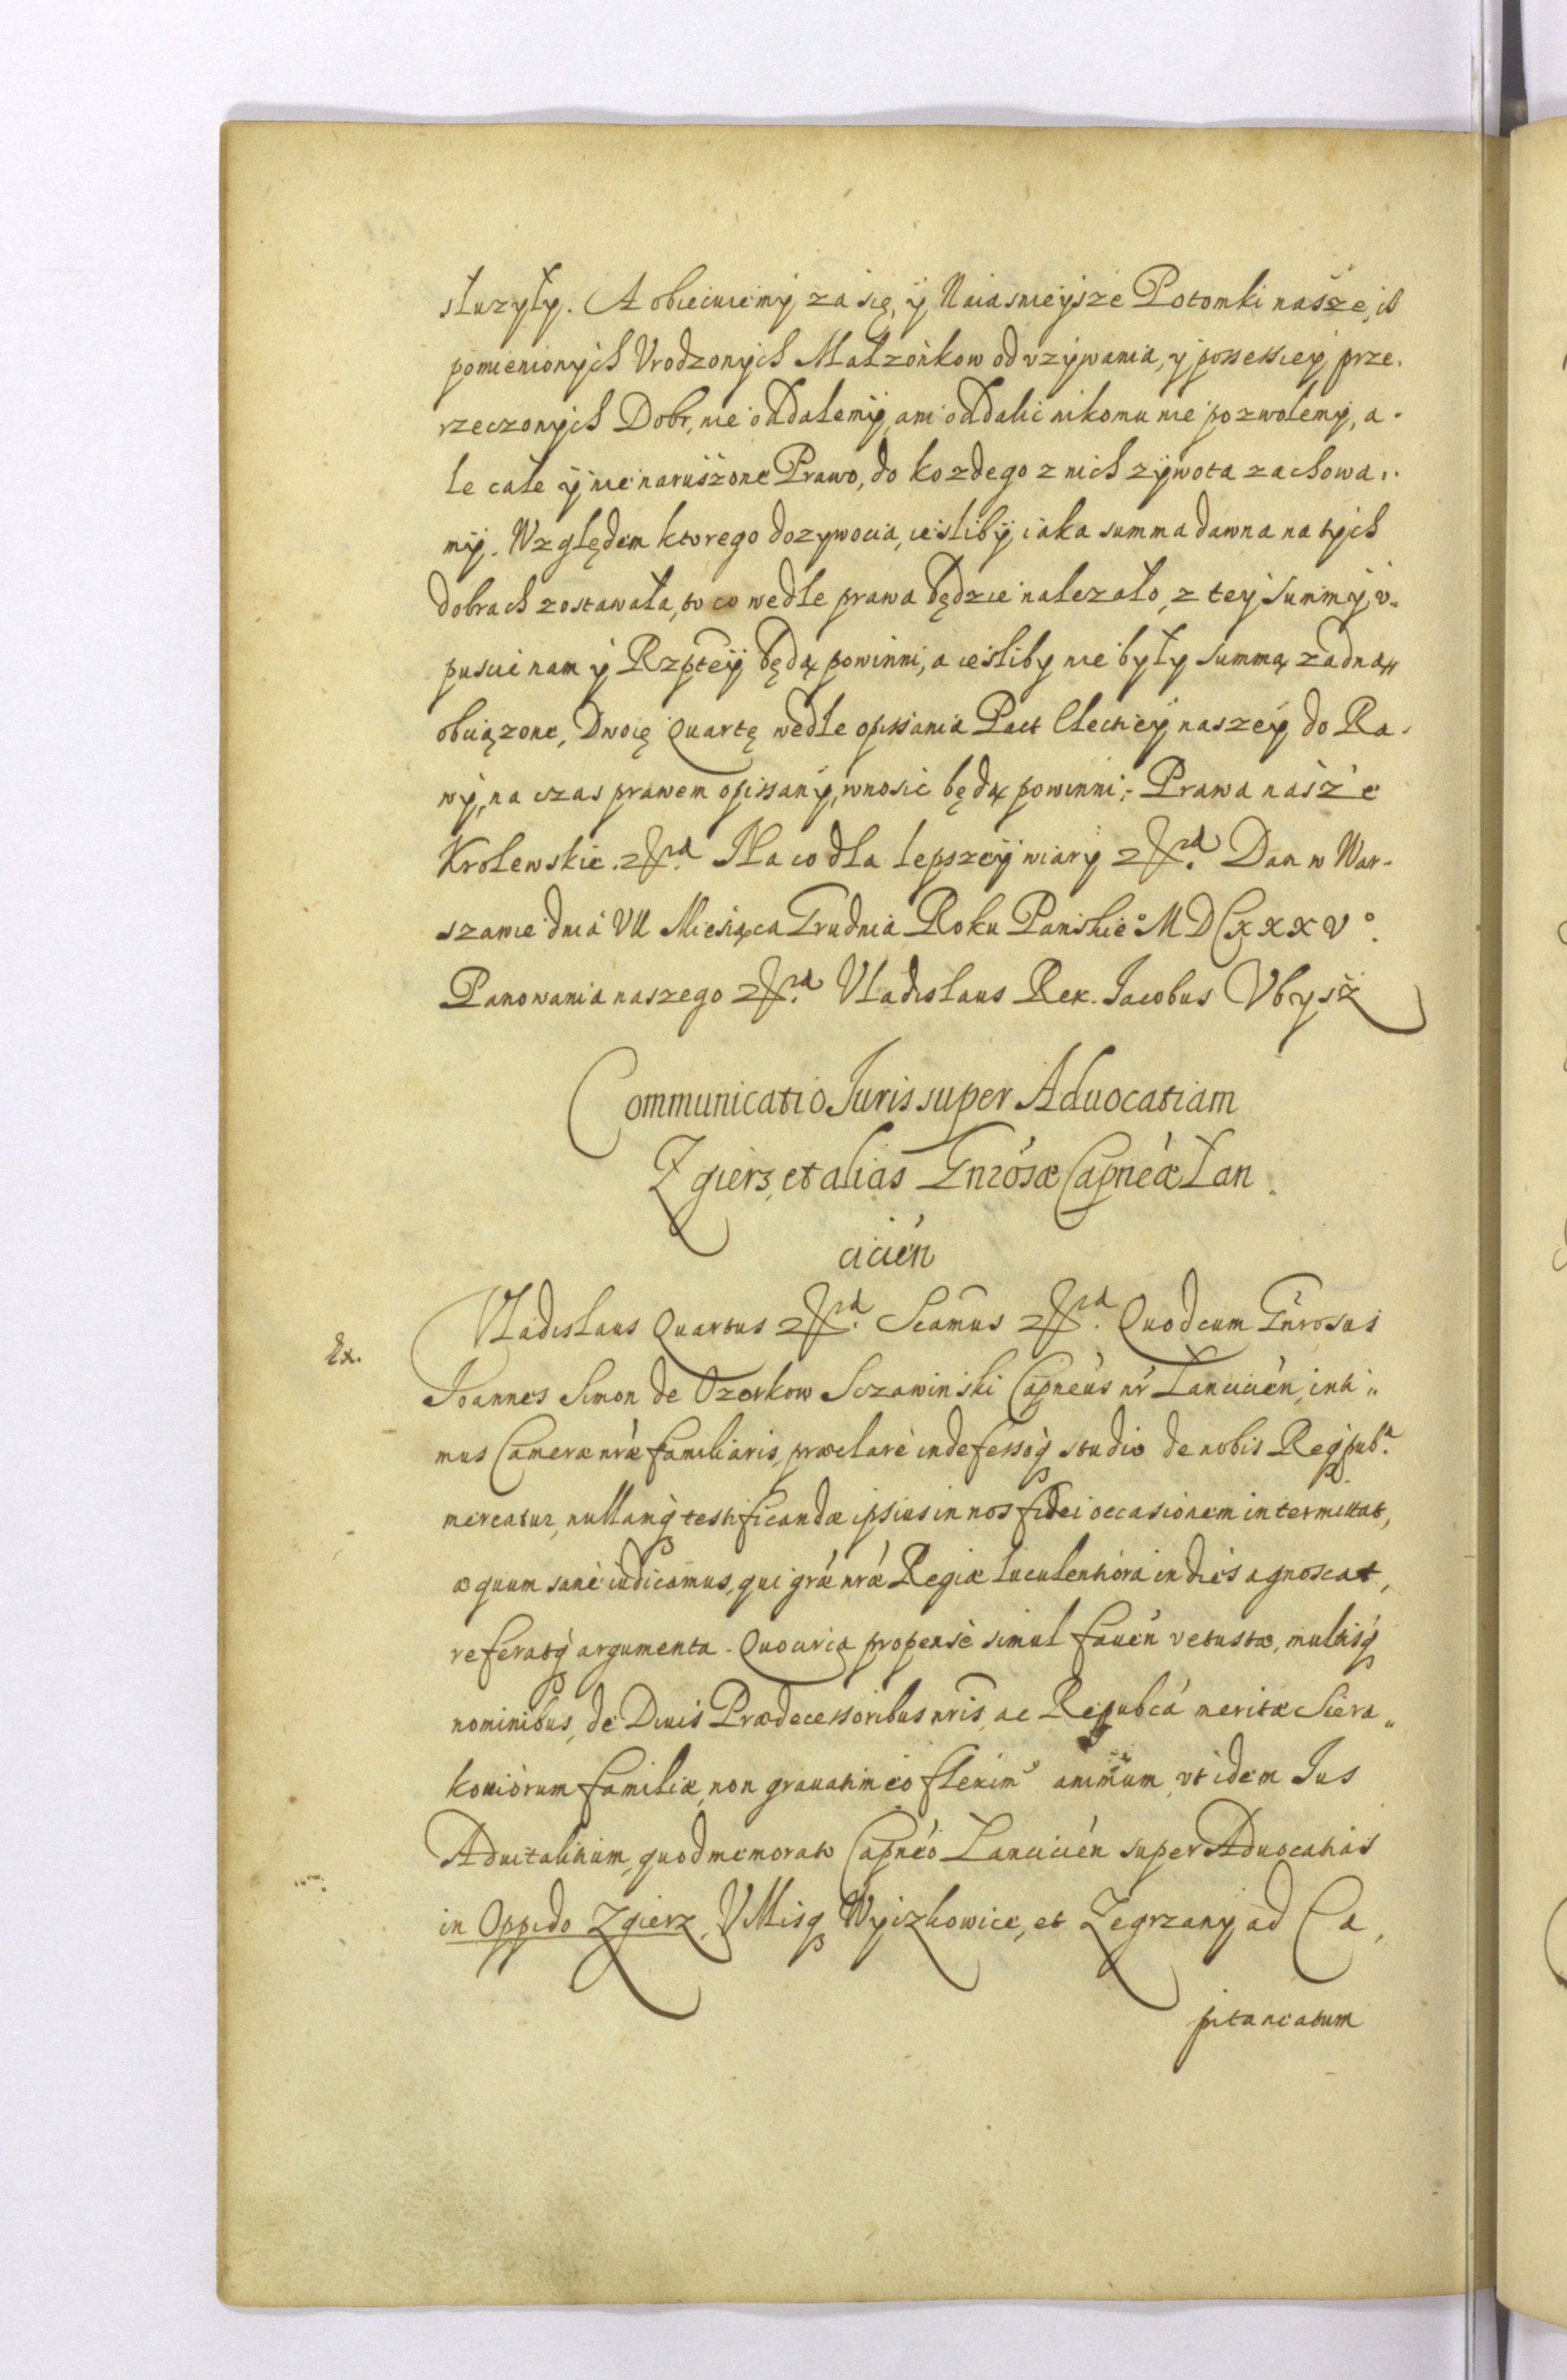 służyły. A obiecuiemy za się, y Naiasnieysze Potomki nasze, iż
pomienionych Vrodzonych Małżonkow od vżywania, y possessiey prze-
rzeczonych Dobr, nie oddalemy, ani oddalić nikomu nie pozwolemy, a-
le całe y nienaruszone Prawo, do kozdego z nich żywota zachowa-
my. Względem ktorego dożywocia, iesliby iaka summa dawna na tych
dobrach zostawała, to co wedle prawa będzie należało, z tey Summy, v-
puscić nam y Rzptey będą powinni, a iesliby nie były summą żadną
obciążone, Dwoię Quartę wedle opissania Pact Electiey naszey do Ra-
wy, na czas prawem opissany, wnosić będą powinni; Prawa nasze
Krolewskie. etc. Na co dla lepszey wiary etc. Dan w War-
szawie dnia VII Miesiąca Grudnia Roku Panskie° MDCXXXV°.
Panowania naszego etc. Vladislaus Rex. Jacobus Vbysz
Communicatio Juris super Aduocatiam
Zgierz, et alias Gnrosæ Capneæ Lan-
cicien
Ex.
Vladislaus Quartus etc. Scamus etc. Quod cum Gnrosus
Joannes Simon de Ozorkow Sczawinski Capneus nr Lancicien, inti-
mus Cameræ nræ familiaris, præclarè indefessoq studio de nobis Reqpubca
mereatur, nullamq testificandæ ipsius in nos fidei occasionem intermittat,
æquum sanè iudicamus, qui græ nræ Regiæ luculentiora indies agnoscat,
referatq argumenta. Quocirca propensè simul fauen vetustæ, multisq
nominibus, de Diuis Prædecessoribus nris, ac Repubca meritæ Siera-
kouiorum familiæ, non grauatim eo flexim9 animum, vt idem Jus
Aduitalitium, quod memorato Capneo Lancicien super Aduocatias
in Oppido Zgierz, Villisq Wyizkowice, et Zegrzany ad Ca-
pitaneatum